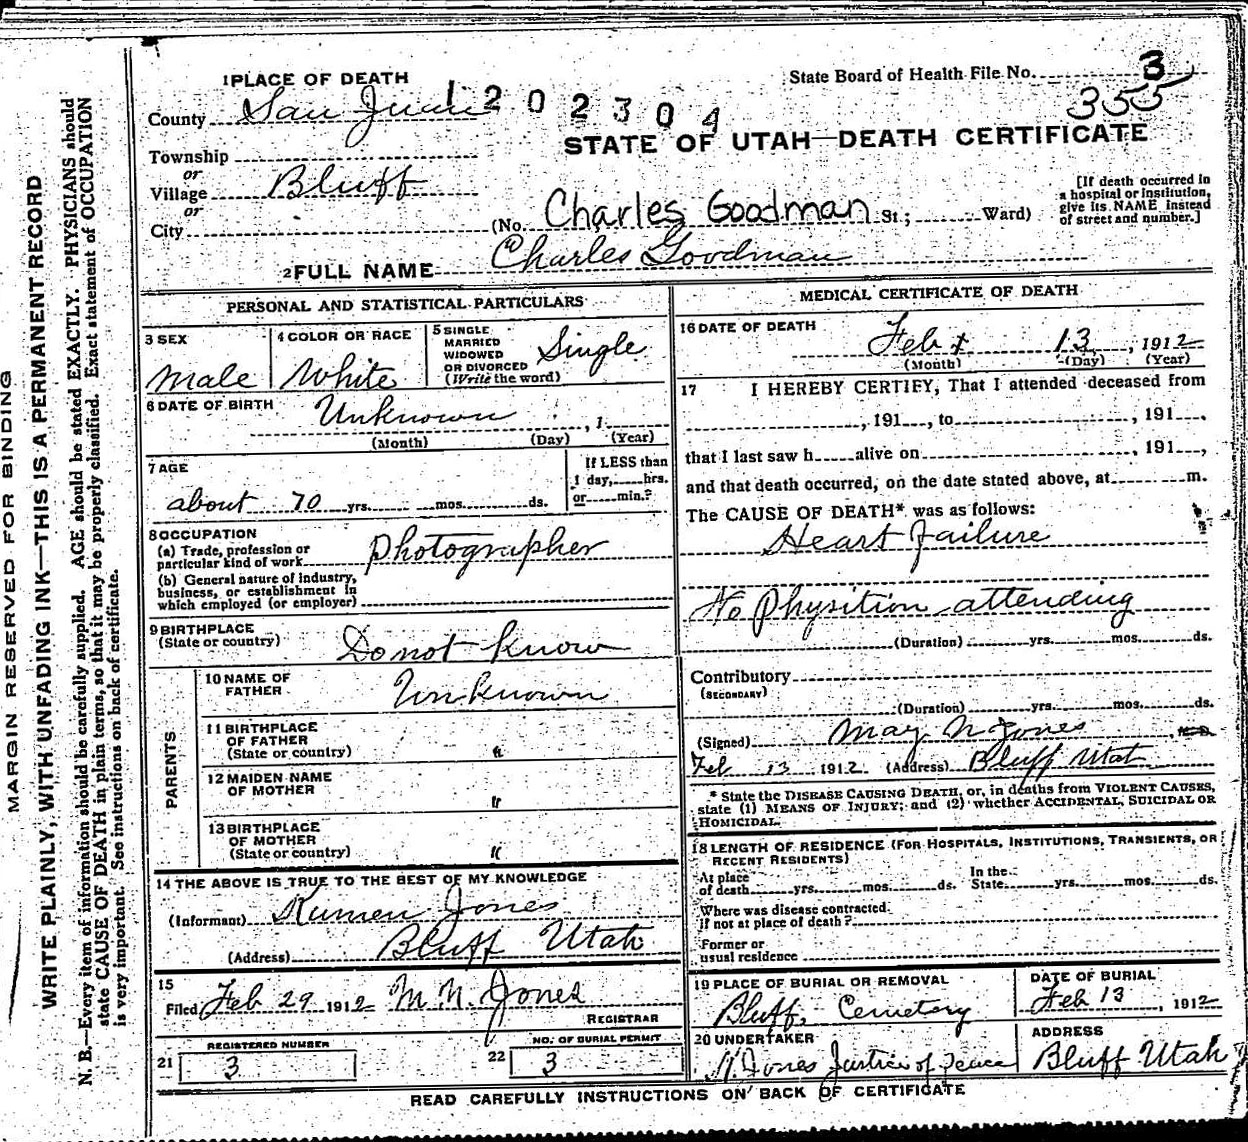 MARGIN RESERVED FOR BINDING
WRITE PLAINLY, WITH UNFADING INK—THIS IS A PERMANENT RECORD
N. B.—Every item of information should be carefully supplied. AGE should be stated EXACTLY. PHYSICIANS should
state CAUSE OF DEATH in plain terms, so that it may be properly classified. Exact statement of OCCUPATION
is very important. See instructions on back of certificate.
1 PLACE OF DEATH
State Board of Health File No. 3
355
County San Juan
1202304
STATE OF UTAH—DEATH CERTIFICATE
Township
or
Village Bluff
or
City
(No. Charles Goodman St.; Ward)
[If death occurred in
a hospital or institution,
give its NAME instead
of street and number.]
2 FULL NAME Charles Goodman
PERSONAL AND STATISTICAL PARTICULARS
3 SEX
Male
4 COLOR OR RACE
White
5 SINGLE
MARRIED
WIDOWED
OR DIVORCED
(Write the word)
Single
6 DATE OF BIRTH
Unknown , 1
(Month) (Day) (Year)
7 AGE
about 70 yrs. mos. ds.
If LESS than
1 day, hrs.
or min.?
8 OCCUPATION
(a) Trade, profession or
particular kind of work Photographer
(b) General nature of industry,
business, or establishment in
which employed (or employer)
9 BIRTHPLACE
(State or country) Do not know
PARENTS
10 NAME OF
FATHER Unknown
11 BIRTHPLACE
OF FATHER
(State or country) "
12 MAIDEN NAME
OF MOTHER "
13 BIRTHPLACE
OF MOTHER
(State or country) "
14 THE ABOVE IS TRUE TO THE BEST OF MY KNOWLEDGE
(Informant) Kumen Jones
(Address) Bluff Utah
15
Filed Feb 29 1912 M. N. Jones
REGISTRAR
21 REGISTERED NUMBER
3
22 NO. OF BURIAL PERMIT
3
MEDICAL CERTIFICATE OF DEATH
16 DATE OF DEATH
Feb 13 , 1912
(Month) (Day) (Year)
17 I HEREBY CERTIFY, That I attended deceased from
, 191 , to , 191 ,
that I last saw h alive on , 191 ,
and that death occurred, on the date stated above, at m.
The CAUSE OF DEATH* was as follows:
Heart failure
No Physition attending
(Duration) yrs. mos. ds.
Contributory
(SECONDARY)
(Duration) yrs. mos. ds.
(Signed) May N Jones , M.D.
Feb 13 1912 (Address) Bluff Utah
* State the DISEASE CAUSING DEATH, or, in deaths from VIOLENT CAUSES,
state (1) MEANS OF INJURY; and (2) whether ACCIDENTAL, SUICIDAL OR
HOMICIDAL.
18 LENGTH OF RESIDENCE (FOR HOSPITALS, INSTITUTIONS, TRANSIENTS, OR
RECENT RESIDENTS)
At place
of death yrs. mos. ds.
In the
State yrs. mos. ds.
Where was disease contracted
if not at place of death?
Former or
usual residence
19 PLACE OF BURIAL OR REMOVAL
Bluff, Cemetery
DATE OF BURIAL
Feb 13 , 1912
20 UNDERTAKER
Jones Justice of peace
ADDRESS
Bluff Utah
READ CAREFULLY INSTRUCTIONS ON BACK OF CERTIFICATE